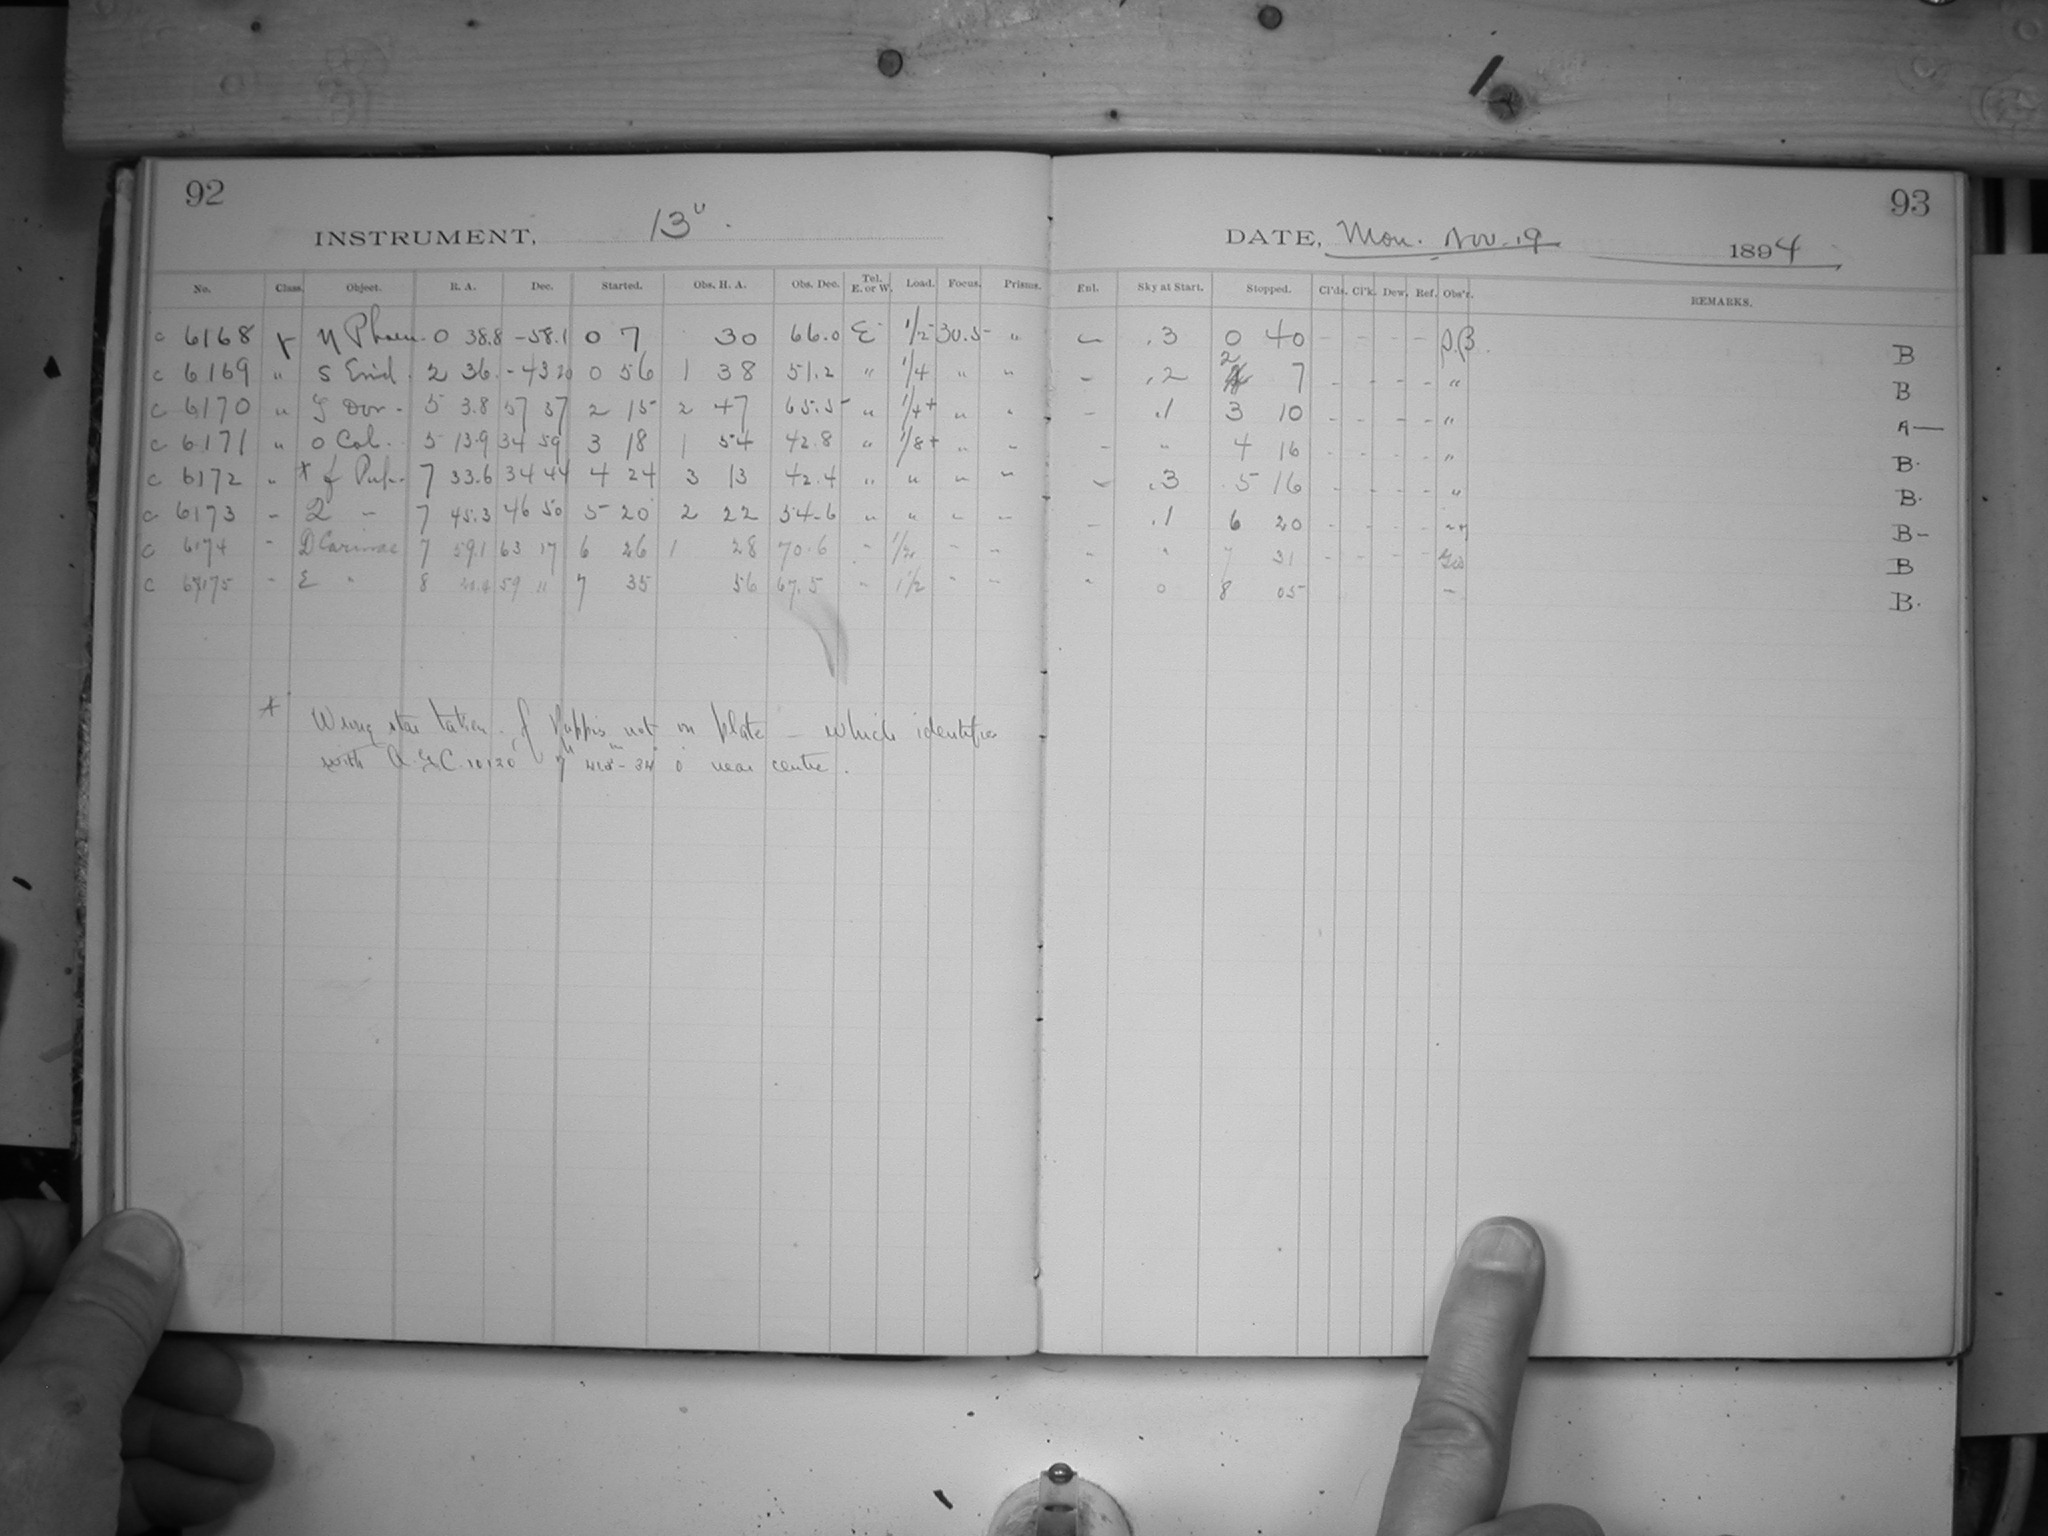 92
93
INSTRUMENT, 13"
DATE, Mon. Nov. 19 1894
No. Class. Object. R. A. Dec. Started. Obs. H. A. Obs. Dec. Tel. E. or W. Load. Focus. Prisms. Enl. Sky at Start. Stopped. Cl'ds. Cl'k. Dew. Ref. Obs'r. REMARKS.
c 6168 η Phoen. 0 38.8 -58.1 0 7 30 66.0 E 1/2 30.5 " .3 0 40 - - - - B
c 6169 " s Erid. 2 36. -43 20 0 56 1 38 51.2 " 1/4 " " - .2 2 7 - - - - " B
c 6170 " ζ Dor. 5 3.8 57 37 2 15 2 47 65.5 " 1/4+ " " - .1 3 10 - - - - " A-
c 6171 " o Col. 5 13.9 34 59 3 18 1 54 42.8 " 1/8+ " " - " 4 16 - - - - " B.
c 6172 " * f Pup. 7 33.6 34 44 4 24 3 13 42.4 " " " " - .3 5 16 - - - - " B.
c 6173 " Q " 7 45.3 46 50 5 20 2 22 54.6 " " " " - .1 6 20 - - - - B-
c 6174 " D Carinae 7 59.1 63 17 6 26 1 28 70.6 " " " " " 7 31 - - - - B
c 6175 " E " 8 59 11 7 35 56 67.5 " 1/2 " " " 0 8 05 - B.
* Wrong star taken. f Puppis not on plate - which identifies
with A.G.C. 10120 7h 34° 0' near centre.